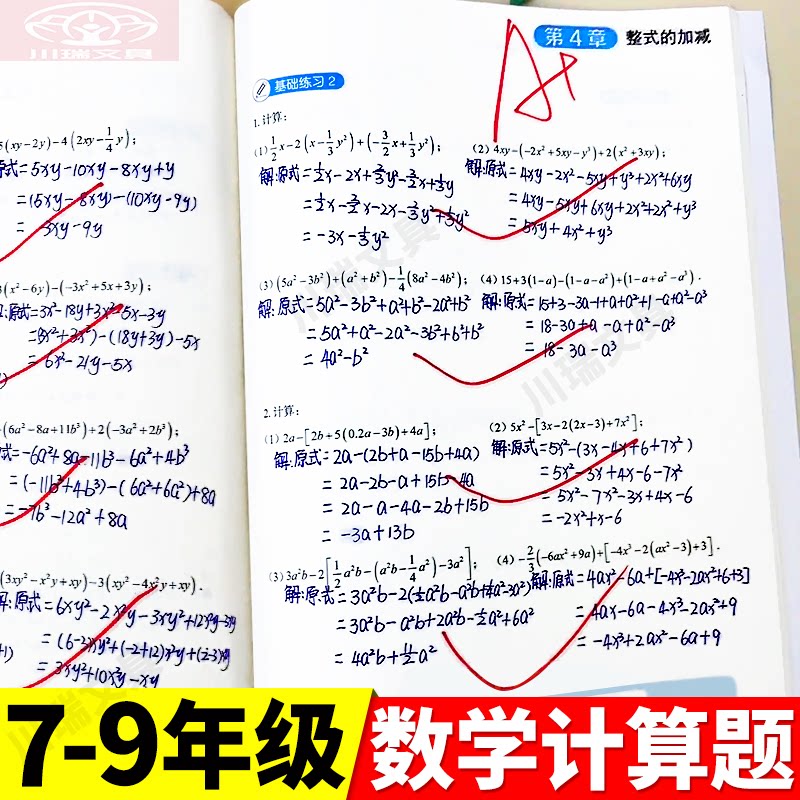 川瑞文具
5(xy-2y)-4(2xy-1/4y);
原式=5xy-10xy-8xy+y
=(5xy-8xy)-(10xy-9y)
= -3xy-9y
3(x²-6y)-(-3x²+5x+3y);
解:原式=3x²-18y+3x²-5x-3y
=(3x²+3x²)-(18y+3y)-5x
= 6x²-21y-5x
(6a²-8a+11b³)+2(-3a²+2b³);
式=-6a²+8a-11b³-6a²+4b³
=(-11b³+4b³)-(6a²+6a²)+8a
=-7b³-12a²+8a
(3xy²-x²y+xy)-3(xy²-4x²y+xy).
解:原式=6xy²-2x²y-3xy²+12x²y-3xy
=(6-2)xy²+(-2+12)x²y+(2-3)xy
= 3xy²+10x²y-xy
第4章 整式的加减
A+
基础练习2
1.计算:
(1) 1/2x-2(x-1/3y²)+(-3/2x+1/3y²);
解:原式=1/2x-2x+2/3y²-3/2x+1/3y
=1/2x-3/2x-2x-2/3y²+1/3y²
=-3x-1/3y²
(2) 4xy-(-2x²+5xy-y³)+2(x²+3xy);
解:原式=4xy-2x²-5xy+y³+2x²+6xy
= 4xy-5xy+6xy+2x²+2x²+y³
= 5xy+4x²+y³
(3) (5a²-3b²)+(a²+b²)-1/4(8a²-4b²);
解:原式=5a²-3b²+a²+b²-2a²+b²
=5a²+a²-2a²-3b²+b²+b²
= 4a²-b²
(4) 15+3(1-a)-(1-a-a²)+(1-a+a²-a³).
解:原式=15+3-3a-1+a+a²+1-a+a²-a³
= 18-3a+a-a+a²-a³
= 18-3a-a³
2.计算:
(1) 2a-[2b+5(0.2a-3b)+4a];
解:原式=2a-(2b+a-15b+4a)
= 2a-2b-a+15b-4a
= 2a-a-4a-2b+15b
= -3a+13b
(2) 5x²-[3x-2(2x-3)+7x²];
解:原式=5x²-(3x-4x+6+7x²)
=5x²-3x+4x-6-7x²
= 5x²-7x²-3x+4x-6
=-2x²+x-6
(3) 3a²b-2[1/2a²b-(a²b-1/4a²)-3a²];
解:原式=3a²b-2(1/2a²b-a²b+1/4a²-3a²)
=3a²b-a²b+2a²b-1/2a²+6a²
= 4a²b+11/2a²
(4) -2/3(-6ax²+9a)+[-4x³-2(ax²-3)+3].
解:原式=4ax²-6a+[-4x³-2ax²+6+3]
= 4ax-6a-4x³-2ax²+9
=-4x³+2ax²-6a+9
川瑞文具
川瑞文具
7-9年级 数学计算题